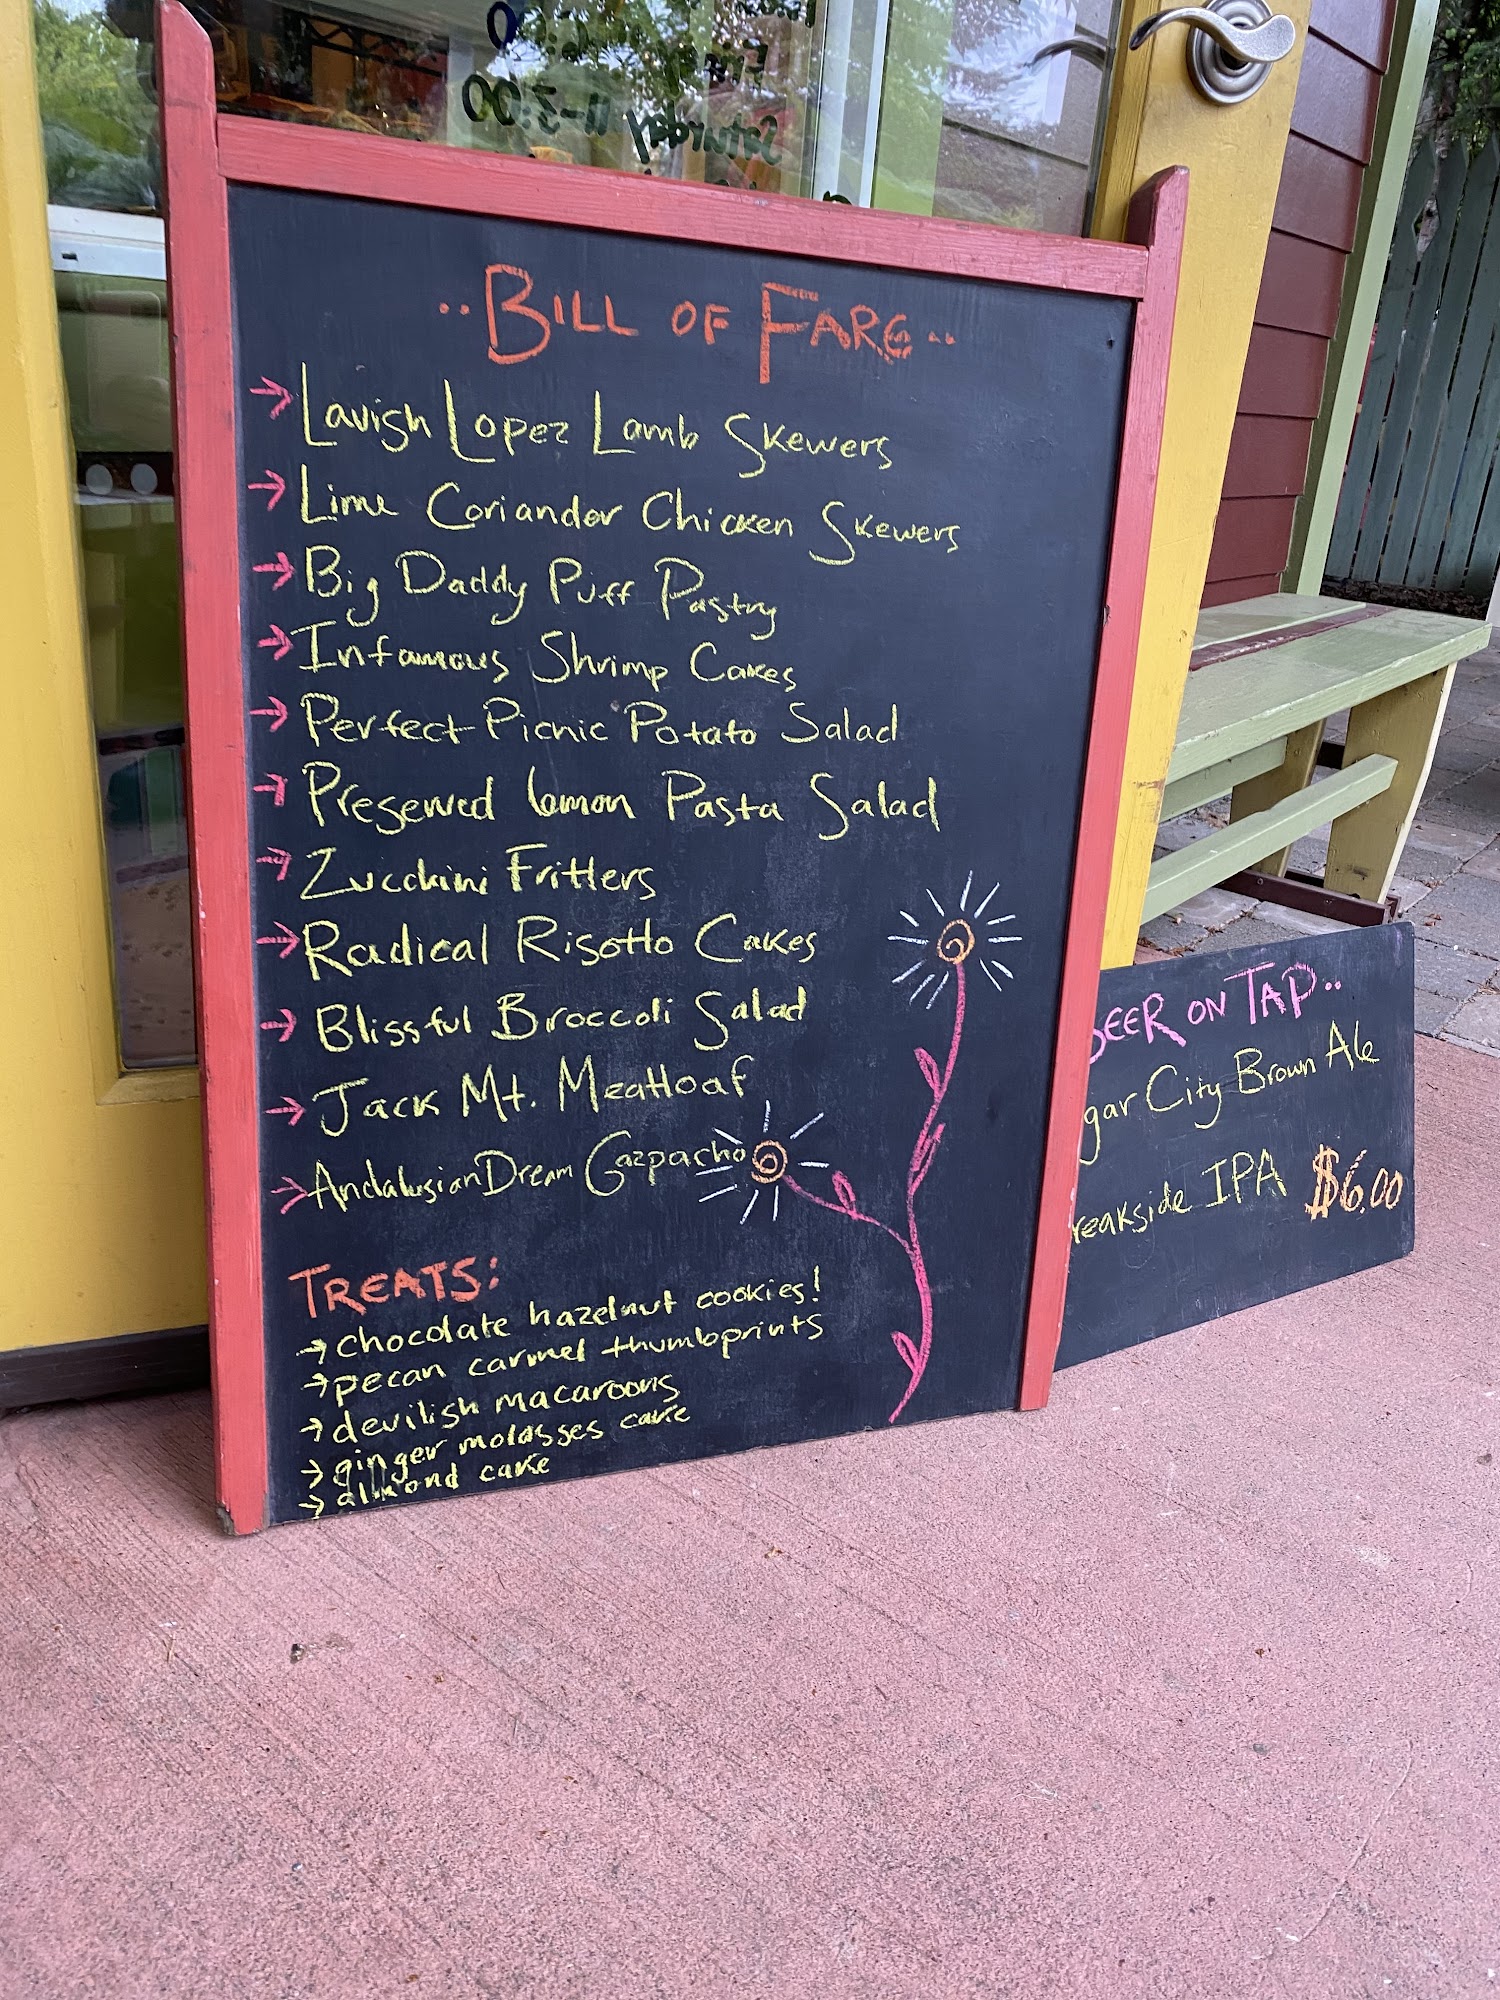 Saturday 11-3:00
..BILL OF FARE..
→ Lavish Lopez Lamb Skewers
→ Lime Coriander Chicken Skewers
→ Big Daddy Puff Pastry
→ Infamous Shrimp Cakes
→ Perfect Picnic Potato Salad
→ Preserved lemon Pasta Salad
→ Zucchini Fritters
→ Radical Risotto Cakes
→ Blissful Broccoli Salad
→ Jack Mt. Meatloaf
→ Andalusian Dream Gazpacho
TREATS:
→ chocolate hazelnut cookies!
→ pecan carmel thumbprints
→ devilish macaroons
→ ginger molasses cake
→ almond cake
BEER ON TAP..
gar City Brown Ale
reakside IPA $6.00